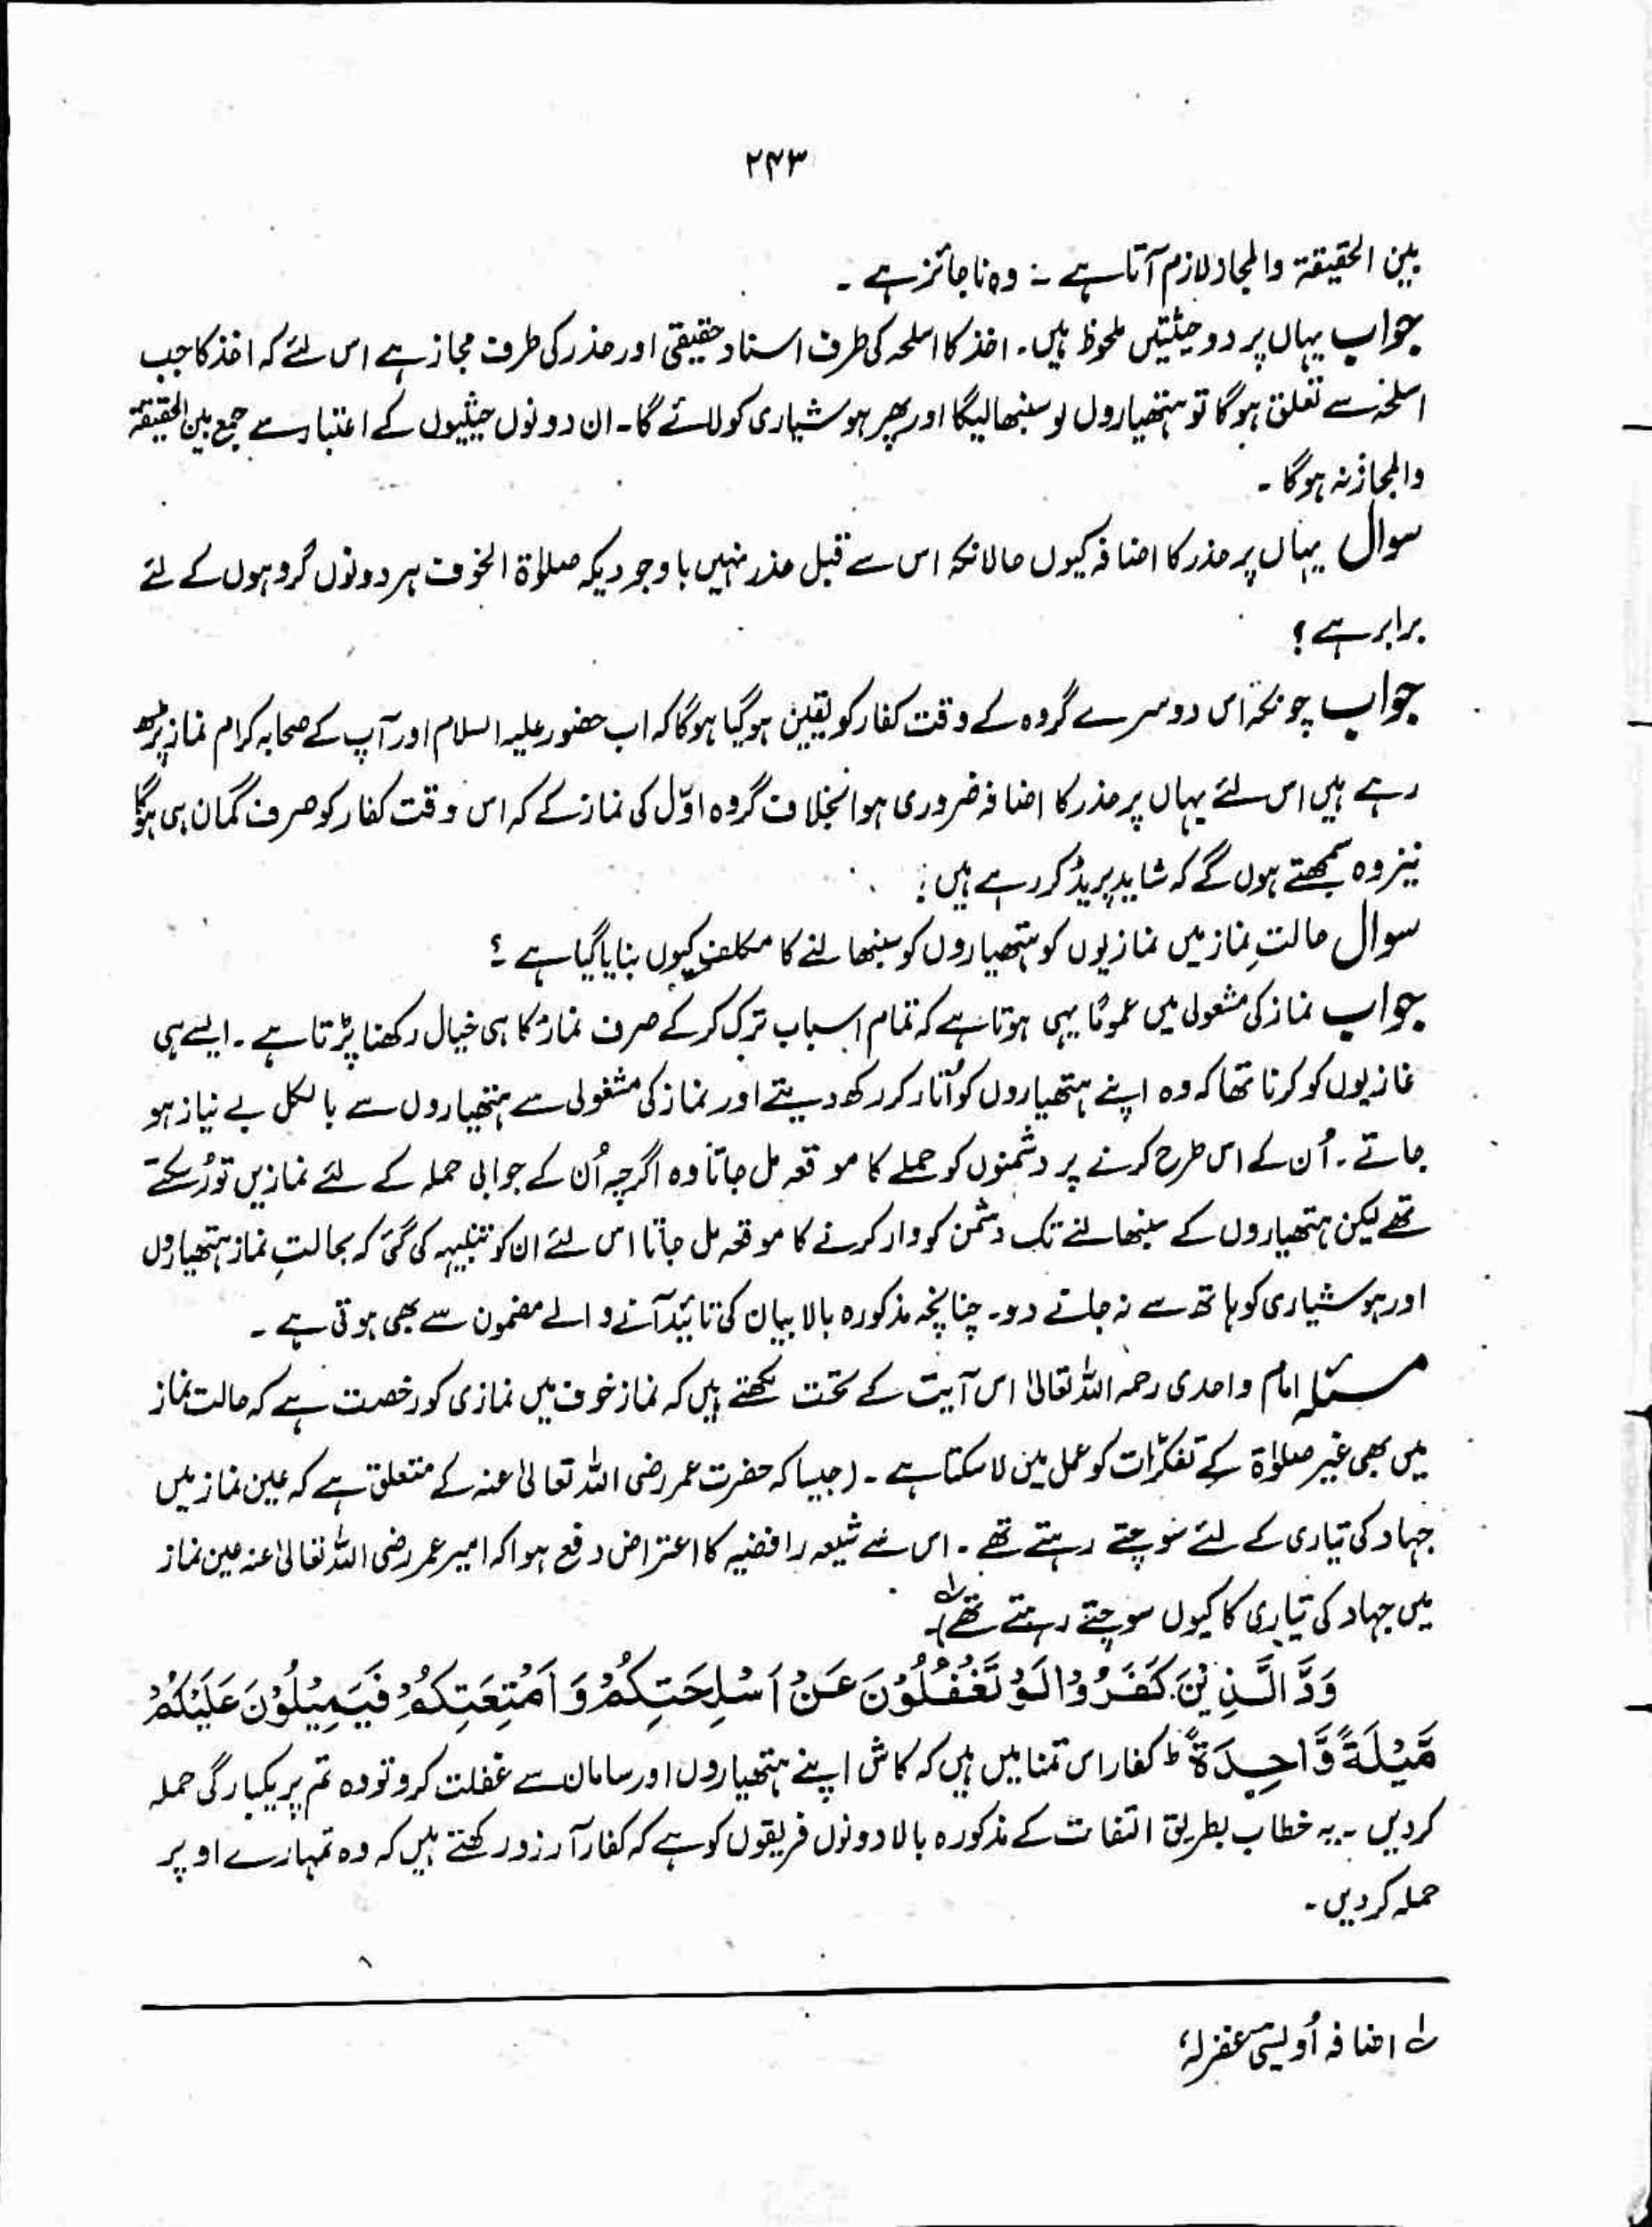 ۲۴۳
بین الحقیقۃ والمجاز لازم آتا ہے ۔ وہ ناجائز ہے ۔
جواب یہاں پر دو حیثیتیں ملحوظ ہیں۔ اخذ کا اسلحہ کی طرف اسناد حقیقی اور حذر کی طرف مجاز ہے اس لئے کہ اخذ کا جب
اسلحہ سے تعلق ہوگا تو ہتھیاروں لو سنبھالیگا اور پھر ہوشیاری کو لائے گا۔ ان دونوں حیثیوں کے اعتبار سے جمع بین الحقیقۃ
والمجاز نہ ہوگا ۔
سوال یہاں پر حذر کا اضافہ کیوں حالانکہ اس سے قبل حذر نہیں باوجودیکہ صلوٰۃ الخوف ہر دونوں گروہوں کے لئے
برابر ہے ؟
جواب چونکہ اس دوسرے گروہ کے وقت کفار کو یقین ہوگیا ہوگا کہ اب حضور علیہ السلام اور آپ کے صحابہ کرام نماز پڑھ
رہے ہیں اس لئے یہاں پر حذر کا اضافہ ضروری ہوا بخلاف گروہ اوّل کی نماز کے کہ اس وقت کفار کو صرف گمان ہی ہوگا
نیز وہ سمجھتے ہوں گے کہ شاید پریڈ کر رہے ہیں :
سوال حالتِ نماز میں نمازیوں کو ہتھیاروں کو سنبھالنے کا مکلف کیوں بنایا گیا ہے ؟
جواب نماز کی مشغولی میں عموماً یہی ہوتا ہے کہ تمام اسباب ترک کرکے صرف نماز کا ہی خیال رکھنا پڑتا ہے ۔ ایسے ہی
غازیوں کو کرنا تھا کہ وہ اپنے ہتھیاروں کو اُتار کر رکھ دیتے اور نماز کی مشغولی سے ہتھیاروں سے بالکل بے نیاز ہو
جاتے ۔ اُن کے اس طرح کرنے پر دشمنوں کو حملے کا موقعہ مل جاتا وہ اگرچہ اُن کے جوابی حملہ کے لئے نمازیں توڑ سکتے
تھے لیکن ہتھیاروں کے سنبھالنے تک دشمن کو وار کرنے کا موقعہ مل جاتا اس لئے ان کو تنبیہہ کی گئی کہ بحالتِ نماز ہتھیاروں
اور ہوشیاری کو ہاتھ سے نہ جانے دو۔ چنانچہ مذکورہ بالا بیان کی تائید آنے والے مضمون سے بھی ہوتی ہے ۔
مسئلہ امام واحدی رحمہ اللہ تعالیٰ اس آیت کے تحت لکھتے ہیں کہ نماز خوف میں نمازی کو رخصت ہے کہ حالت نماز
میں بھی غیر صلوٰۃ کے تفکرّات کو عمل میں لا سکتا ہے ۔ (جیسا کہ حضرت عمر رضی اللہ تعالیٰ عنہ کے متعلق ہے کہ عین نماز میں
جہاد کی تیاری کے لئے سوچتے رہتے تھے ۔ اس سے شیعہ رافضیہ کا اعتراض دفع ہوا کہ امیر عمر رضی اللہ تعالیٰ عنہ عین نماز
میں جہاد کی تیاری کا کیوں سوچتے رہتے تھے)۔ لہ
وَدَّ الَّذِیْنَ کَفَرُوْا لَوْ تَغْفُلُوْنَ عَنْ اَسْلِحَتِکُمْ وَ اَمْتِعَتِکُمْ فَیَمِیْلُوْنَ عَلَیْکُمْ
مَّیْلَةً وَّاحِدَةً ط کفار اس تمنا میں ہیں کہ کاش اپنے ہتھیاروں اور سامان سے غفلت کرو تو وہ تم پر یکبارگی حملہ
کر دیں ۔ یہ خطاب بطریق التفات کے مذکورہ بالا دونوں فریقوں کو ہے کہ کفار آرزو رکھتے ہیں کہ وہ تمہارے اوپر
حملہ کر دیں ۔
لہ اضافہ اُویسی غفرلہٗ